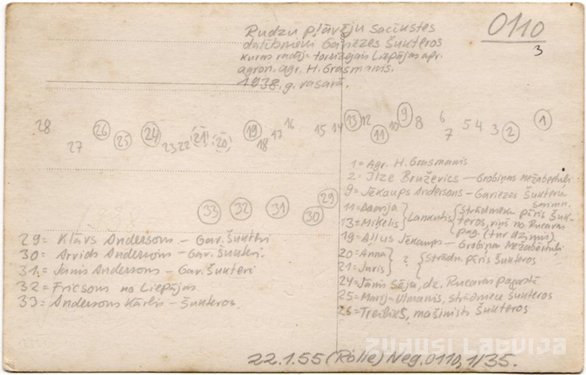 Rudzu pļāvēju sacīkstes
dalībnieki Gaviezes Šuķteros
kuras rīkoja toreizējais Liepājas apr.
agron. agr. H. Grasmanis.
1938. g. vasarā.
0110
3
28 27 26 25 24 23 22 21 20 19 18 17 16 15 14 13 12 11 10 9 8 7 6 5 4 3 2 1
33 32 31 30 29
1 = Agr. H. Grasmanis
2 = Ilze Bružēvics – Grobiņas
9 = Jēkaups Andersons – Gaviezes Šuķteru
11 = Dārija
13 = Miķelis
strādnieku pāris Šuķteros, viņi no Rucavas
pag.
19 = Jēkaups – Grobiņas
20 = Anna
21 = Juris
Strādn. pāris Šuķteros
24 = Jānis Sēja, dz. Rucavas pagastā
25 = Marija Ulmanis, strādniece Šuķteros
26 = mašīnists Šuķteros
29 = Klāvs Andersons – Gav. Šuķteri
30 = Arvids Andersons – Gav. Šuķtri.
31 = Jānis Andersons – Gav. Šuķteri
32 = Fricsons no Liepājas
33 = Andersons Kārlis – Šuķteros
ZUDUSI LATVIJA
22.1.55 (Rolle) Neg. 0110, 1/35.